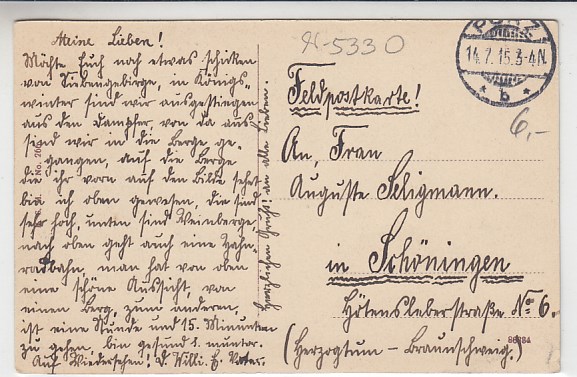 Meine Lieben!
Möchte Euch noch etwas schiken
von Siebengebirge, in Königs-
winter sind wir ausgestiegen
aus den Dampfer von da aus
sind wir in die Berge ge-
gangen, auf die Berge
die ihr vorn auf den Bilde sehet
bin ich oben gewesen, die sind
sehr hoch, unten sind Weinberge,
nach oben geht auch eine Zahn-
radbahn, man hat von oben
eine schöne Aussicht, von
einen Berg, zum anderen,
ist eine Stunde und 15. Minunten
zu gehen, bin gesund u. munter.
Auf Wiedersehen! D. Willi. E. Vater.
Herzlichen Gruß! an alle Lieben.
5330
PORZ
14.7.15.3-4N.
* b *
6,-
Feldpostkarte!
An, Frau
Auguste Seligmann.
in Schöningen
Hötensleberstraße No 6.
(Herzogtum - Braunschweig.)
86884